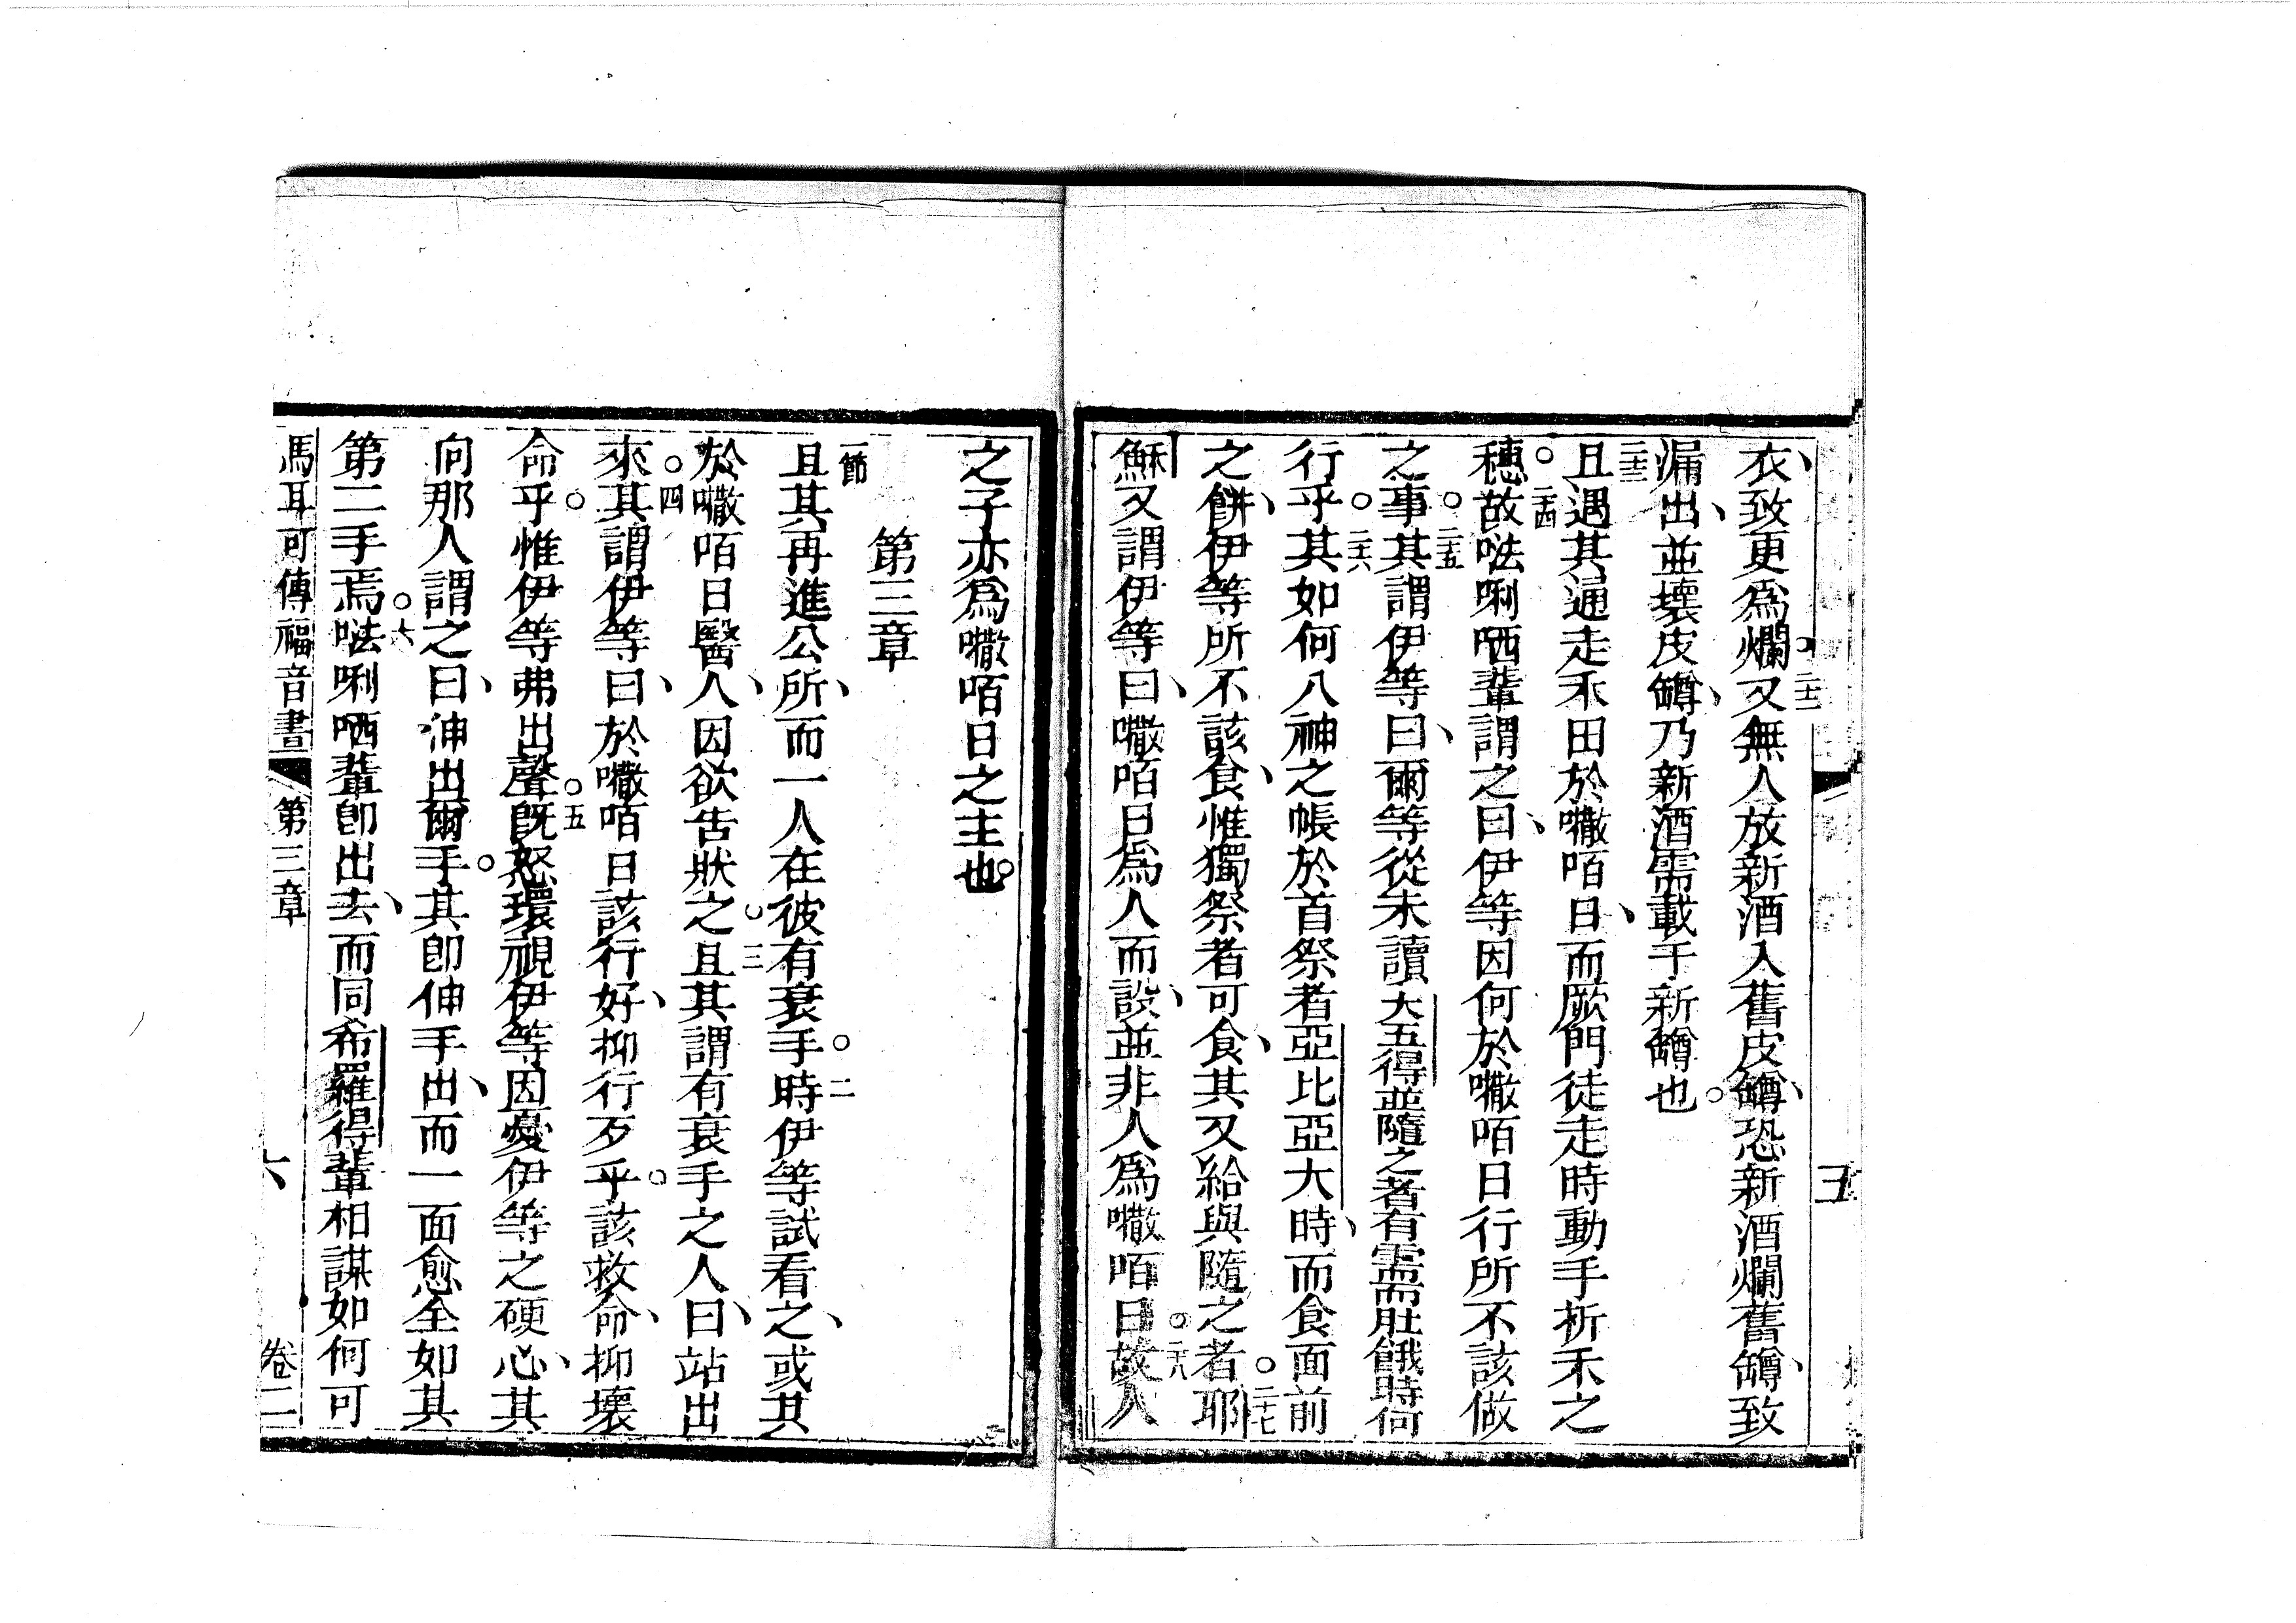 衣、致更爲爛。二十二又無人放新酒入舊皮罇、恐新酒爛舊罇、致
漏出、並壞皮罇、乃新酒需載于新罇也。
二十三且遇其通走禾田於𠹌咟日、而厥門徒走時動手折禾之
穗。二十四故𠵽唎哂輩謂之曰、伊等因何於𠹌咟日行所不該做
之事。二十五其謂伊等曰、爾等從未讀大五得並隨之者有需而肚餓時何
行乎。二十六其如何入神之帳於首祭者亞比亞大時、而食面前
之餅、伊等所不該食、惟獨祭者可食、其又給與隨之者。二十七耶
穌又謂伊等曰、𠹌咟日爲人而設、並非人爲𠹌咟日。二十八故人
五
之子亦爲𠹌咟日之主也。
第三章
一節且其再進公所、而一人在彼有衰手。二時伊等試看之、或其
於𠹌咟日醫人、因欲告狀之。三且其謂有衰手之人、曰站出
來。四其謂伊等曰、於𠹌咟日該行好、抑行歹乎。該救命、抑壞
命乎。惟伊等弗出聲。五旣怒環視伊等、因憂伊等之硬心、其
向那人謂之曰、伸出爾手。其卽伸手出、而一面愈全如其
第二手焉。六𠵽唎哂輩卽出去、而同希羅得輩相謀如何可
馬耳可傳福音書 第三章 六 卷二